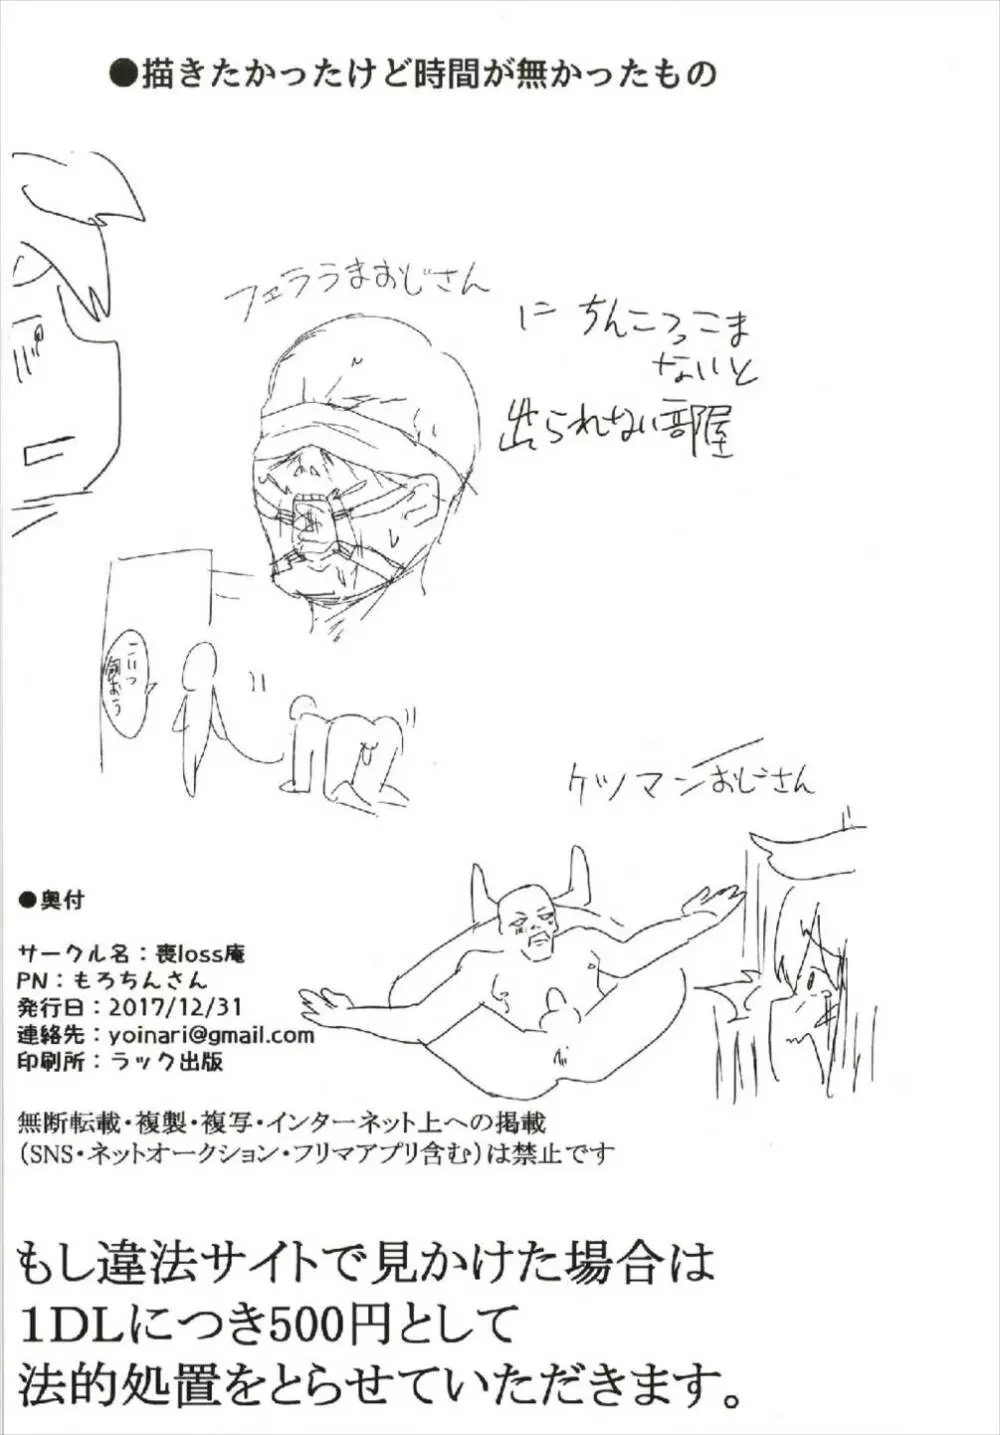 ●描きたかったけど時間が無かったもの
フェラうまおじさん
に ちんこつっこま
ないと
出られない部屋
こいつ
飼おう
ケツマンおじさん
●奥付
サークル名：喪loss庵
PN：もろちんさん
発行日：2017/12/31
連絡先：yoinari@gmail.com
印刷所：ラック出版
無断転載・複製・複写・インターネット上への掲載
（SNS・ネットオークション・フリマアプリ含む）は禁止です
もし違法サイトで見かけた場合は
1DLにつき500円として
法的処置をとらせていただきます。